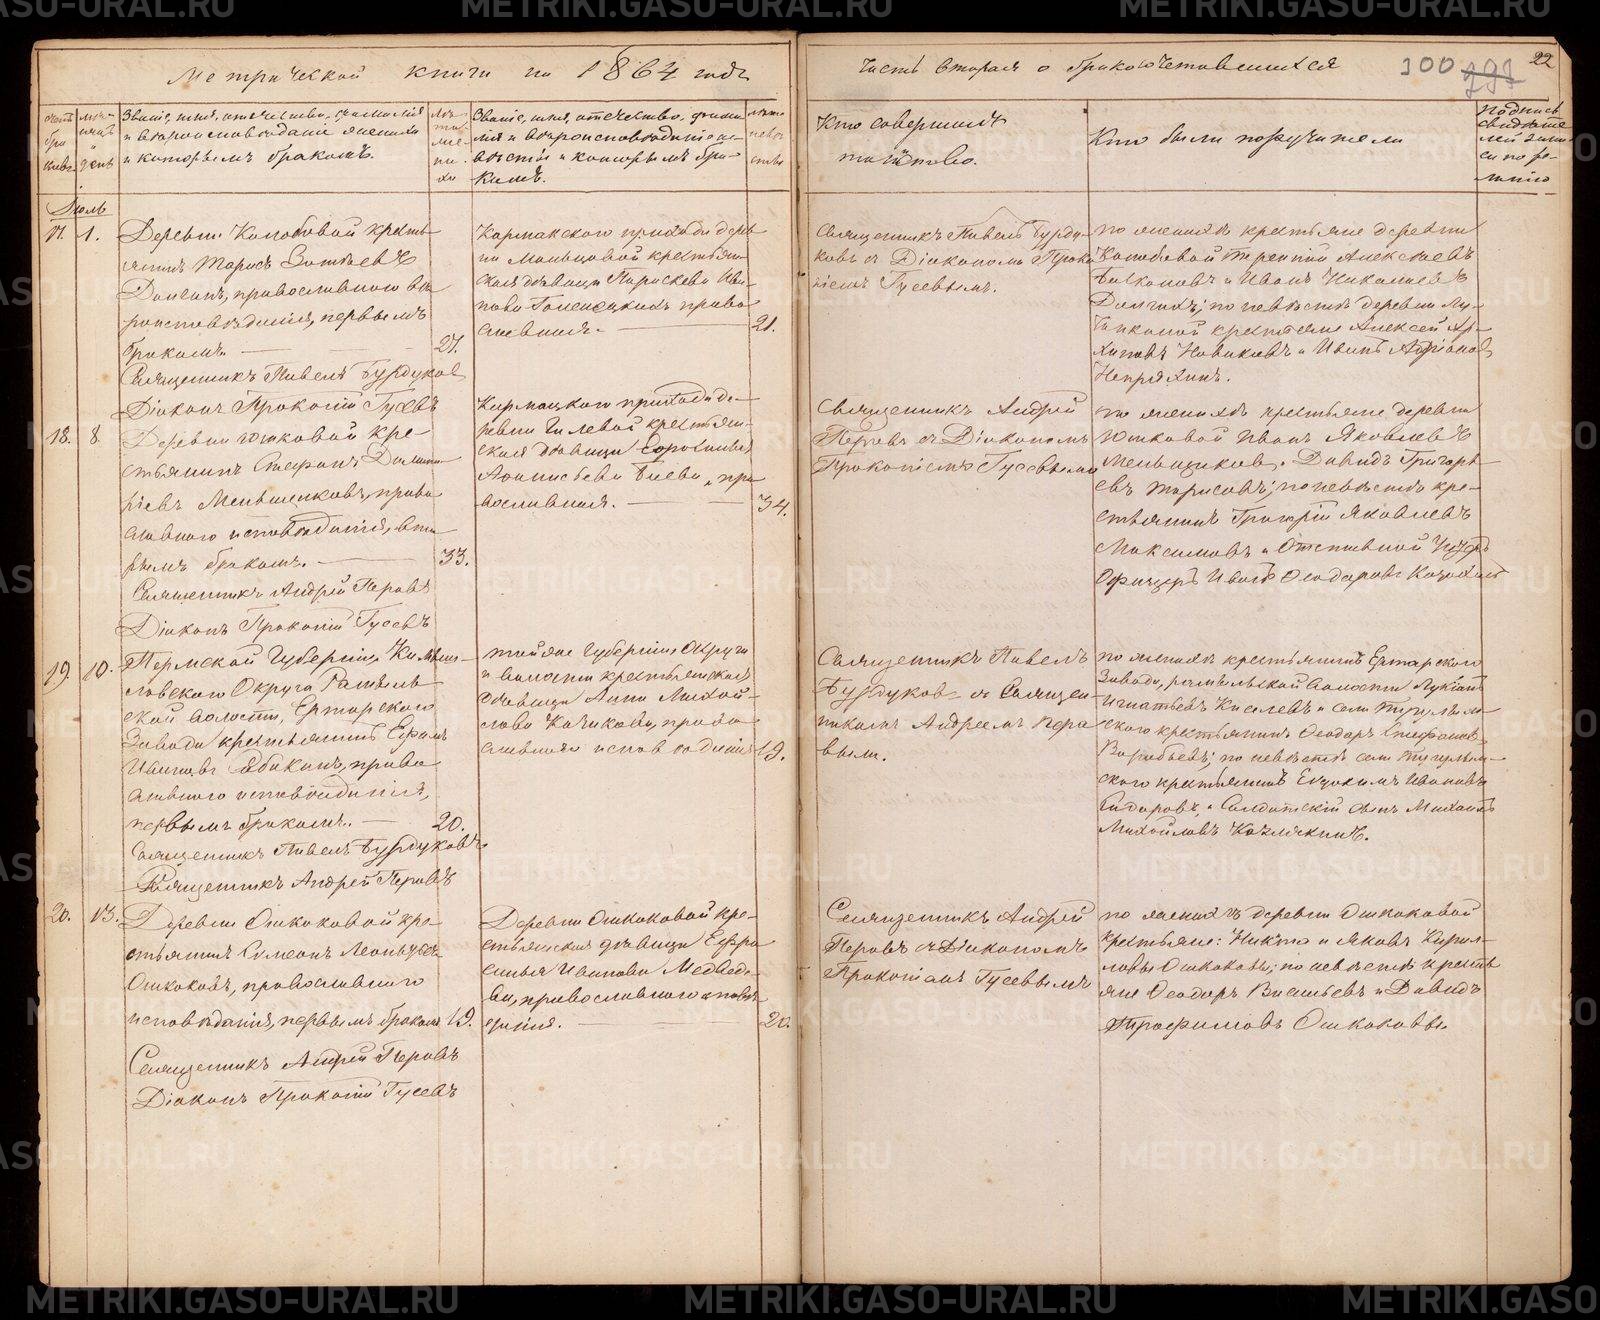 Метрической книги на 1864 годъ
Часть вторая о бракосочетавшихся
100
22
Счетъ браковъ
Мѣсяцъ и день
Званіе, имя, отчество, фамилія
и вѣроисповѣданіе жениха
и которымъ бракомъ.
Лѣта жениха
Званіе, имя, отчество, фами-
лія и вѣроисповѣданіе не-
вѣсты и которымъ бра-
комъ.
Лѣта невѣсты
Кто совершилъ
таинство.
Кто были поручители
Подпись
свидѣте
лей записи
си по же-
ланію
Іюль
17. 1.
Деревни Колобовой кресть
янинъ Тарасъ Зотѣевъ
православнаго вѣ
роисповѣданія, первымъ
бракомъ.
27.
Священникъ Павелъ Бурдуковъ
Діаконъ Прокопій Гусевъ
Кармакскаго прихода дерев
ни Мальцовой крестьян
ская дѣвица Параскева Ива
нова право
славная.
21.
Священникъ Павелъ Бурду-
ковъ съ Діакономъ Проко
піемъ Гусевымъ.
по женихѣ крестьяне деревни
Колобовой Терентій Алексѣевъ
и Иванъ Николаевъ
по невѣстѣ деревни
крестьяне Алексей Ар-
хиповъ Новиковъ и Иванъ
Непряхинъ.
18. 8
Деревни Юшковой кре-
стьянинъ Стефанъ
Меньщиковъ, право
славнаго исповѣданія, вто
рымъ бракомъ.
33.
Священникъ Андрей Перовъ
Діаконъ Прокопій Гусевъ
Кармацкаго прихода де-
ревни крестьян-
ская дѣвица
пра
вославная.
34.
Священникъ Андрей
Перовъ съ Діакономъ
Прокопіемъ Гусевымъ
по женихѣ крестьяне деревни
Юшковой Иванъ Яковлевъ
Меньщиковъ, Давидъ Григорь-
евъ Тарасовъ; по невѣстѣ кре-
стьянинъ Григорій Яковлевъ
Максимовъ и Отставной Унтеръ
Офицеръ Иванъ Ѳеодоровъ
19 10.
Пермской Губерніи, Камыш-
ловскаго Округа
ской волости, Ертарскаго
Завода крестьянинъ Ефимъ
Ивановъ Ябакинъ, право
славнаго исповѣданія,
первымъ бракомъ.
20.
Священникъ Павелъ Бурдуковъ
Священникъ Андрей Перовъ
той же Губерніи Округа
и волости крестьянская
дѣвица Анна Михай-
лова право
славнаго исповѣданія
19.
Священникъ Павелъ
Бурдуковъ съ Священ-
никомъ Андреемъ Перо
вымъ.
по женихѣ крестьянинъ Ертарскаго
Завода, волости Лукіанъ
Игнатьевъ Киселевъ и села Тугулым-
скаго крестьянинъ Ѳеодоръ Стефановъ
Воробьевъ; по невѣстѣ села Тугулым-
скаго крестьянинъ Евдокимъ Ивановъ
Сидоровъ, и Солдатскій сынъ Михаилъ
Михайловъ
20. 13.
Деревни Ошкоковой кре-
стьянинъ Симеонъ Леонтьевъ
Ошкоковъ, православнаго
исповѣданія, первымъ бракомъ
19.
Священникъ Андрей Перовъ
Діаконъ Прокопій Гусевъ
Деревни Ошкоковой кре-
стьянская дѣвица Ефро
синья Иванова Медведе-
ва, православнаго исповѣ-
данія.
20.
Священникъ Андрей
Перовъ съ Діакономъ
Прокопіемъ Гусевымъ
по женихѣ деревни Ошкоковой
крестьяне: Никита и Яковъ Кирил-
ловы Ошкоковы; по невѣстѣ кресть
яне Ѳеодоръ Васильевъ и Давидъ
Трофимовъ Ошкоковы.
METRIKI.GASO-URAL.RU